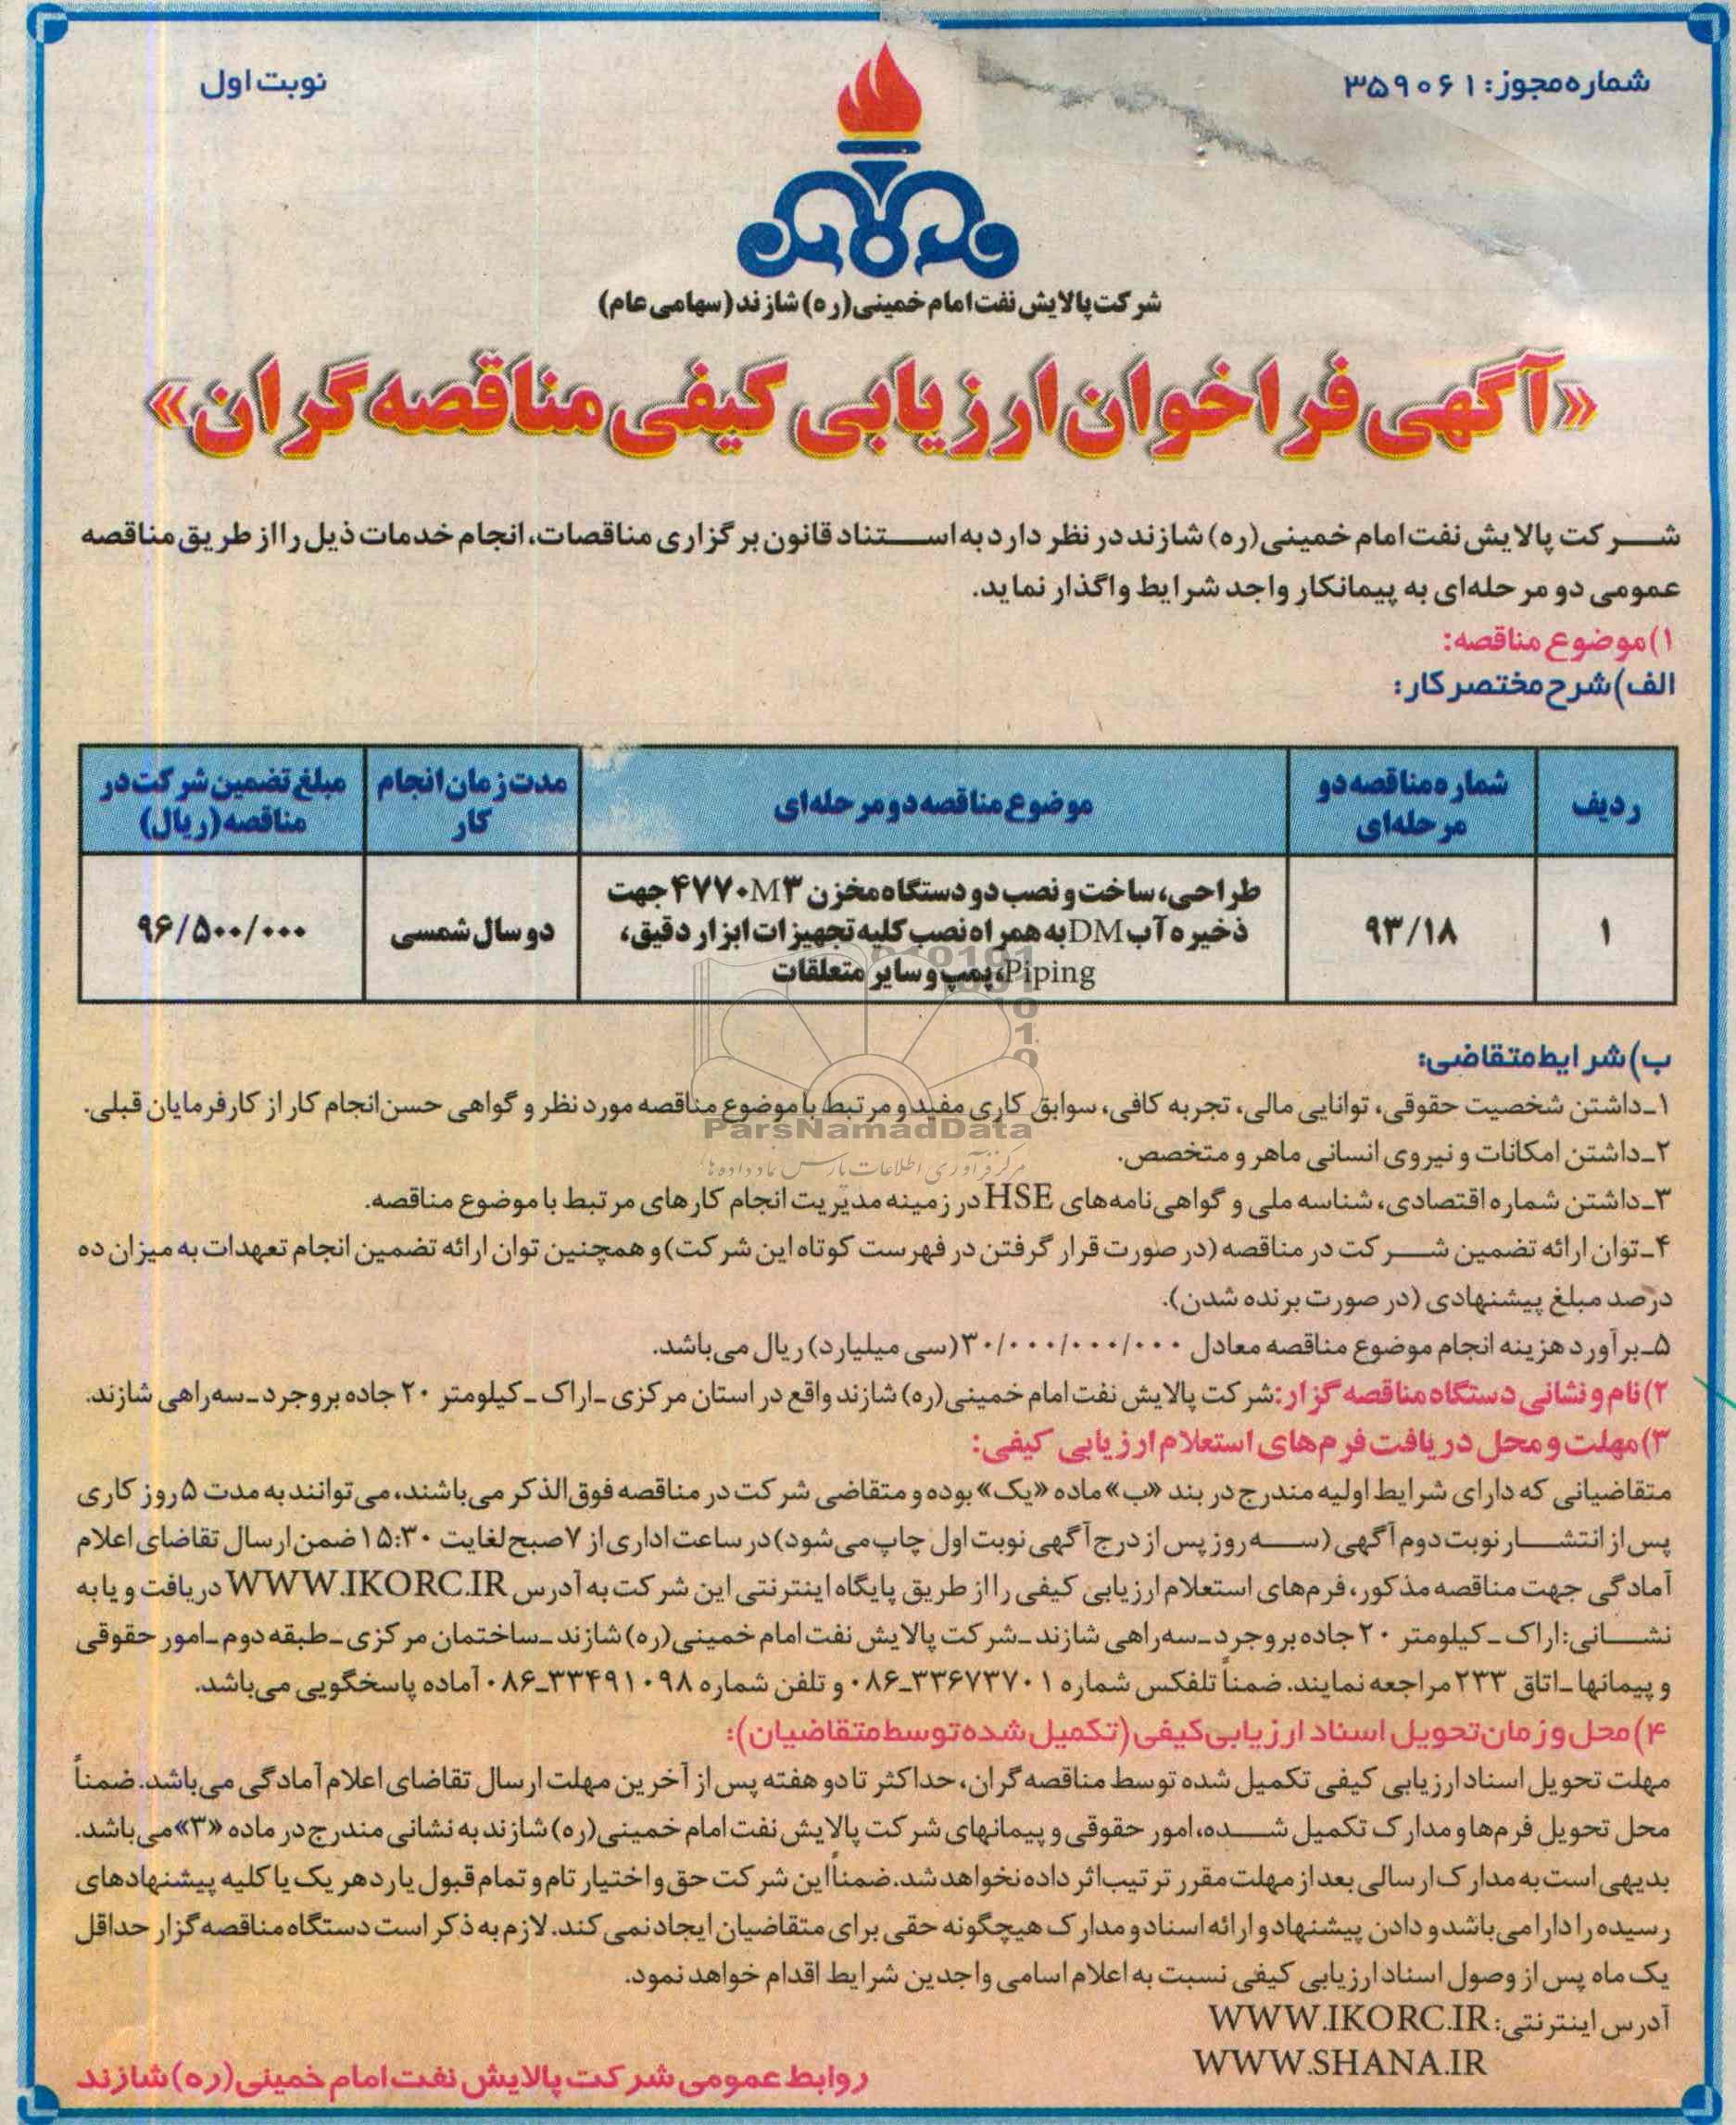 شماره مجوز: ۳۵۹۰۶۱
نوبت اول
شرکت پالایش نفت امام خمینی(ره) شازند (سهامی عام)
«آگهی فراخوان ارزیابی کیفی مناقصه گران»
شرکت پالایش نفت امام خمینی(ره) شازند در نظر دارد به استناد قانون برگزاری مناقصات، انجام خدمات ذیل را از طریق مناقصه
عمومی دو مرحله‌ای به پیمانکار واجد شرایط واگذار نماید.
۱) موضوع مناقصه:
الف) شرح مختصر کار:
ردیف
شماره مناقصه دو
مرحله‌ای
موضوع مناقصه دو مرحله‌ای
مدت زمان انجام
کار
مبلغ تضمین شرکت در
مناقصه (ریال)
۱
۹۳/۱۸
طراحی، ساخت و نصب دو دستگاه مخزن ۴۷۷۰M۳ جهت
ذخیره آب DM به همراه نصب کلیه تجهیزات ابزار دقیق،
Piping، پمپ و سایر متعلقات
دو سال شمسی
۹۶/۵۰۰/۰۰۰
ب) شرایط متقاضی:
۱ـ داشتن شخصیت حقوقی، توانایی مالی، تجربه کافی، سوابق کاری مفید و مرتبط با موضوع مناقصه مورد نظر و گواهی حسن انجام کار از کارفرمایان قبلی.
ParsNamadData
۲ـ داشتن امکانات و نیروی انسانی ماهر و متخصص.
مرکز فرآوری اطلاعات پارس نماد داده ها
۳ـ داشتن شماره اقتصادی، شناسه ملی و گواهی نامه‌های HSE در زمینه مدیریت انجام کارهای مرتبط با موضوع مناقصه.
۴ـ توان ارائه تضمین شرکت در مناقصه (در صورت قرار گرفتن در فهرست کوتاه این شرکت) و همچنین توان ارائه تضمین انجام تعهدات به میزان ده
درصد مبلغ پیشنهادی (در صورت برنده شدن).
۵ـ برآورد هزینه انجام موضوع مناقصه معادل ۳۰/۰۰۰/۰۰۰/۰۰۰ (سی میلیارد) ریال می‌باشد.
۲) نام و نشانی دستگاه مناقصه گزار: شرکت پالایش نفت امام خمینی(ره) شازند واقع در استان مرکزی ـ اراک ـ کیلومتر ۲۰ جاده بروجرد ـ سه‌راهی شازند.
۳) مهلت و محل دریافت فرم‌های استعلام ارزیابی کیفی:
متقاضیانی که دارای شرایط اولیه مندرج در بند «ب» ماده «یک» بوده و متقاضی شرکت در مناقصه فوق الذکر می‌باشند، می‌توانند به مدت ۵ روز کاری
پس از انتشار نوبت دوم آگهی (سه روز پس از درج آگهی نوبت اول چاپ می‌شود) در ساعت اداری از ۷ صبح لغایت ۱۵:۳۰ ضمن ارسال تقاضای اعلام
آمادگی جهت مناقصه مذکور، فرم‌های استعلام ارزیابی کیفی را از طریق پایگاه اینترنتی این شرکت به آدرس WWW.IKORC.IR دریافت و یا به
نشانی: اراک ـ کیلومتر ۲۰ جاده بروجرد ـ سه‌راهی شازند ـ شرکت پالایش نفت امام خمینی(ره) شازند ـ ساختمان مرکزی ـ طبقه دوم ـ امور حقوقی
و پیمانها ـ اتاق ۲۳۳ مراجعه نمایند. ضمناً تلفکس شماره ۳۳۶۷۳۷۰۱ـ۰۸۶ و تلفن شماره ۳۳۴۹۱۰۹۸ـ۰۸۶ آماده پاسخگویی می‌باشد.
۴) محل و زمان تحویل اسناد ارزیابی کیفی (تکمیل شده توسط متقاضیان):
مهلت تحویل اسناد ارزیابی کیفی تکمیل شده توسط مناقصه گران، حداکثر تا دو هفته پس از آخرین مهلت ارسال تقاضای اعلام آمادگی می‌باشد. ضمناً
محل تحویل فرم‌ها و مدارک تکمیل شده، امور حقوقی و پیمانهای شرکت پالایش نفت امام خمینی(ره) شازند به نشانی مندرج در ماده «۳» می‌باشد.
بدیهی است به مدارک ارسالی بعد از مهلت مقرر ترتیب اثر داده نخواهد شد. ضمناً این شرکت حق و اختیار تام و تمام قبول یا رد هر یک یا کلیه پیشنهادهای
رسیده را دارا می‌باشد و دادن پیشنهاد و ارائه اسناد و مدارک هیچگونه حقی برای متقاضیان ایجاد نمی کند. لازم به ذکر است دستگاه مناقصه گزار حداقل
یک ماه پس از وصول اسناد ارزیابی کیفی نسبت به اعلام اسامی واجدین شرایط اقدام خواهد نمود.
آدرس اینترنتی: WWW.IKORC.IR
WWW.SHANA.IR
روابط عمومی شرکت پالایش نفت امام خمینی(ره) شازند